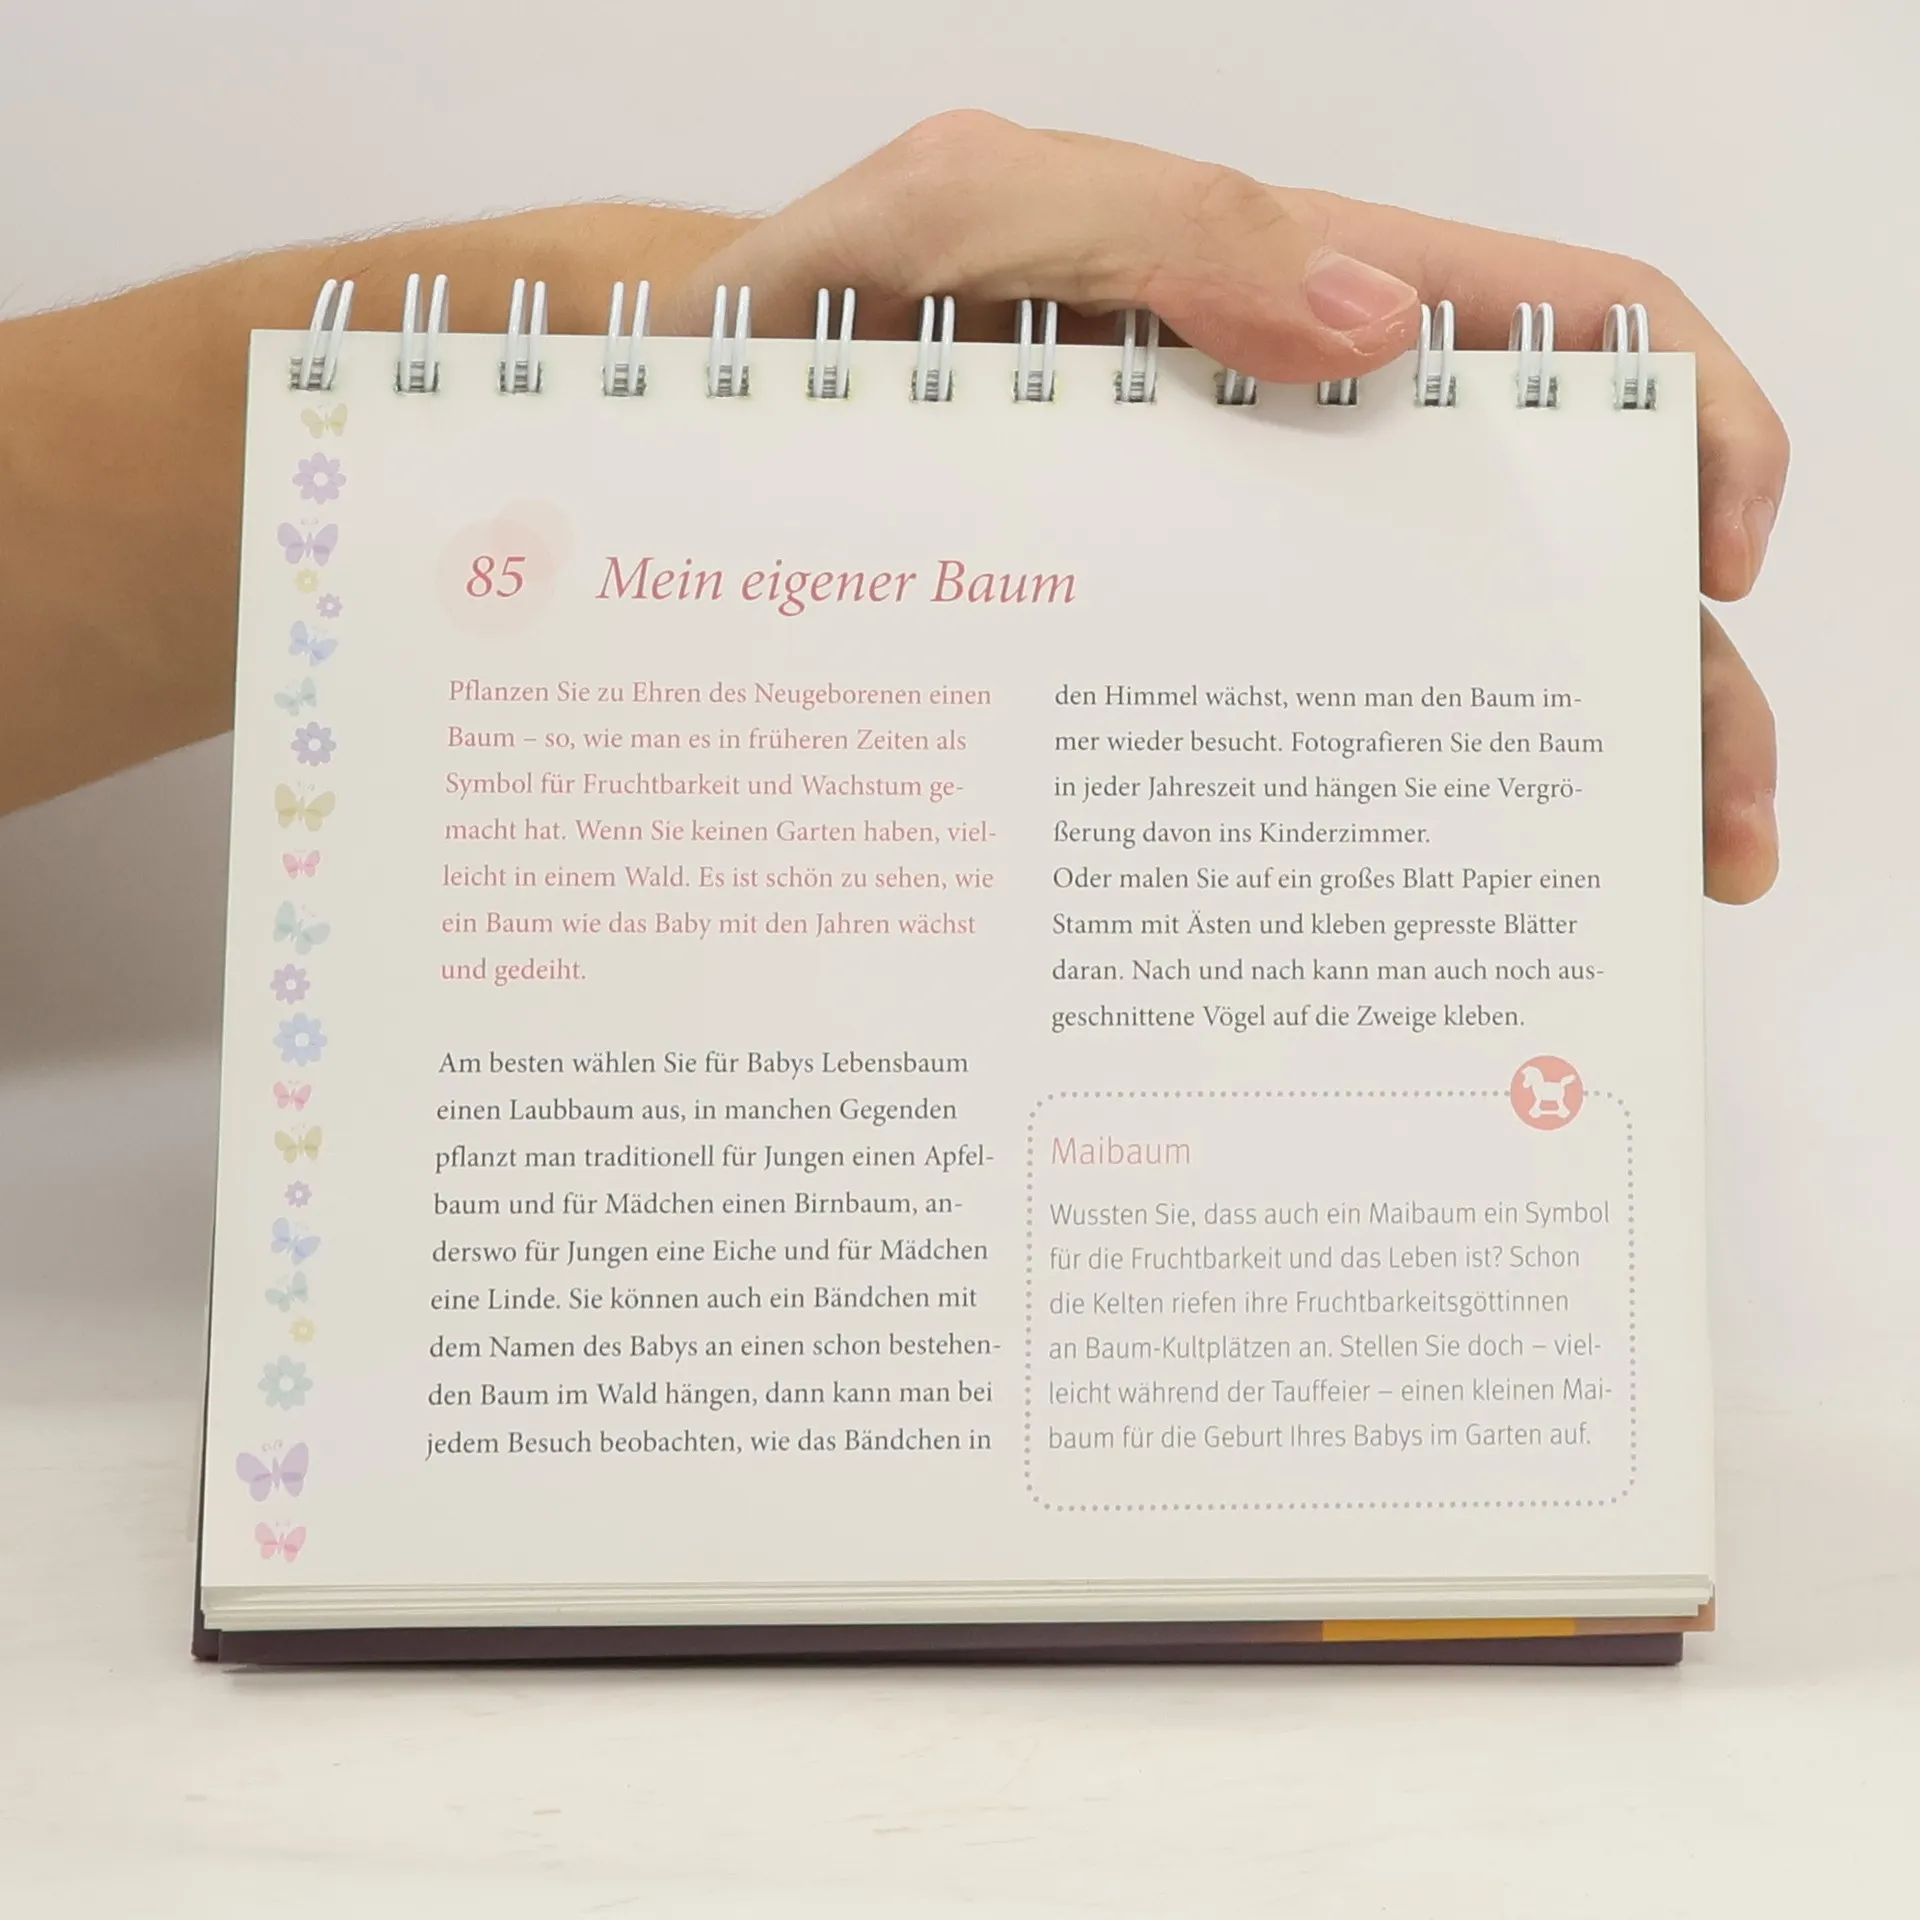 85 Mein eigener Baum
Pflanzen Sie zu Ehren des Neugeborenen einen
Baum – so, wie man es in früheren Zeiten als
Symbol für Fruchtbarkeit und Wachstum ge-
macht hat. Wenn Sie keinen Garten haben, viel-
leicht in einem Wald. Es ist schön zu sehen, wie
ein Baum wie das Baby mit den Jahren wächst
und gedeiht.
Am besten wählen Sie für Babys Lebensbaum
einen Laubbaum aus, in manchen Gegenden
pflanzt man traditionell für Jungen einen Apfel-
baum und für Mädchen einen Birnbaum, an-
derswo für Jungen eine Eiche und für Mädchen
eine Linde. Sie können auch ein Bändchen mit
dem Namen des Babys an einen schon bestehen-
den Baum im Wald hängen, dann kann man bei
jedem Besuch beobachten, wie das Bändchen in
den Himmel wächst, wenn man den Baum im-
mer wieder besucht. Fotografieren Sie den Baum
in jeder Jahreszeit und hängen Sie eine Vergrö-
ßerung davon ins Kinderzimmer.
Oder malen Sie auf ein großes Blatt Papier einen
Stamm mit Ästen und kleben gepresste Blätter
daran. Nach und nach kann man auch noch aus-
geschnittene Vögel auf die Zweige kleben.
Maibaum
Wussten Sie, dass auch ein Maibaum ein Symbol
für die Fruchtbarkeit und das Leben ist? Schon
die Kelten riefen ihre Fruchtbarkeitsgöttinnen
an Baum-Kultplätzen an. Stellen Sie doch – viel-
leicht während der Tauffeier – einen kleinen Mai-
baum für die Geburt Ihres Babys im Garten auf.